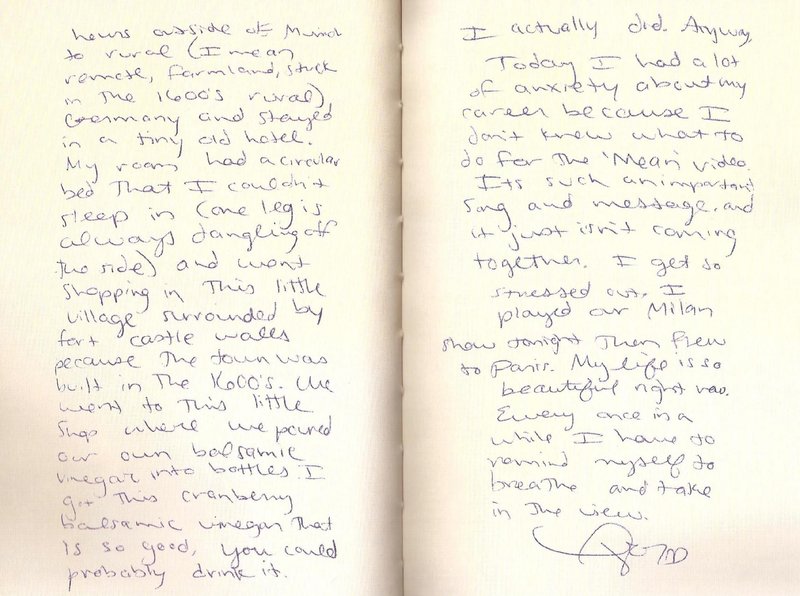 hours outside of Munich
to rural (I mean
remote, farmland, stuck
in the 1600's rural)
Germany and stayed
in a tiny old hotel.
My room had a circular
bed that I couldn't
sleep in (one leg is
always dangling off
the side) and went
shopping in this little
village surrounded by
fort castle walls
because the town was
built in the 1600's. We
went to this little
shop where we poured
our own balsamic
vinegar into bottles. I
got this cranberry
balsamic vinegar that
is so good, you could
probably drink it.
I actually did. Anyway,
Today I had a lot
of anxiety about my
career because I
don't know what to
do for the 'Mean' video.
Its such an important
song and message. and
it just isn't coming
together. I get so
stressed out. I
played our Milan
show tonight then flew
to Paris. My life is so
beautiful right now.
Every once in a
while I have to
remind myself to
breathe and take
in the view.